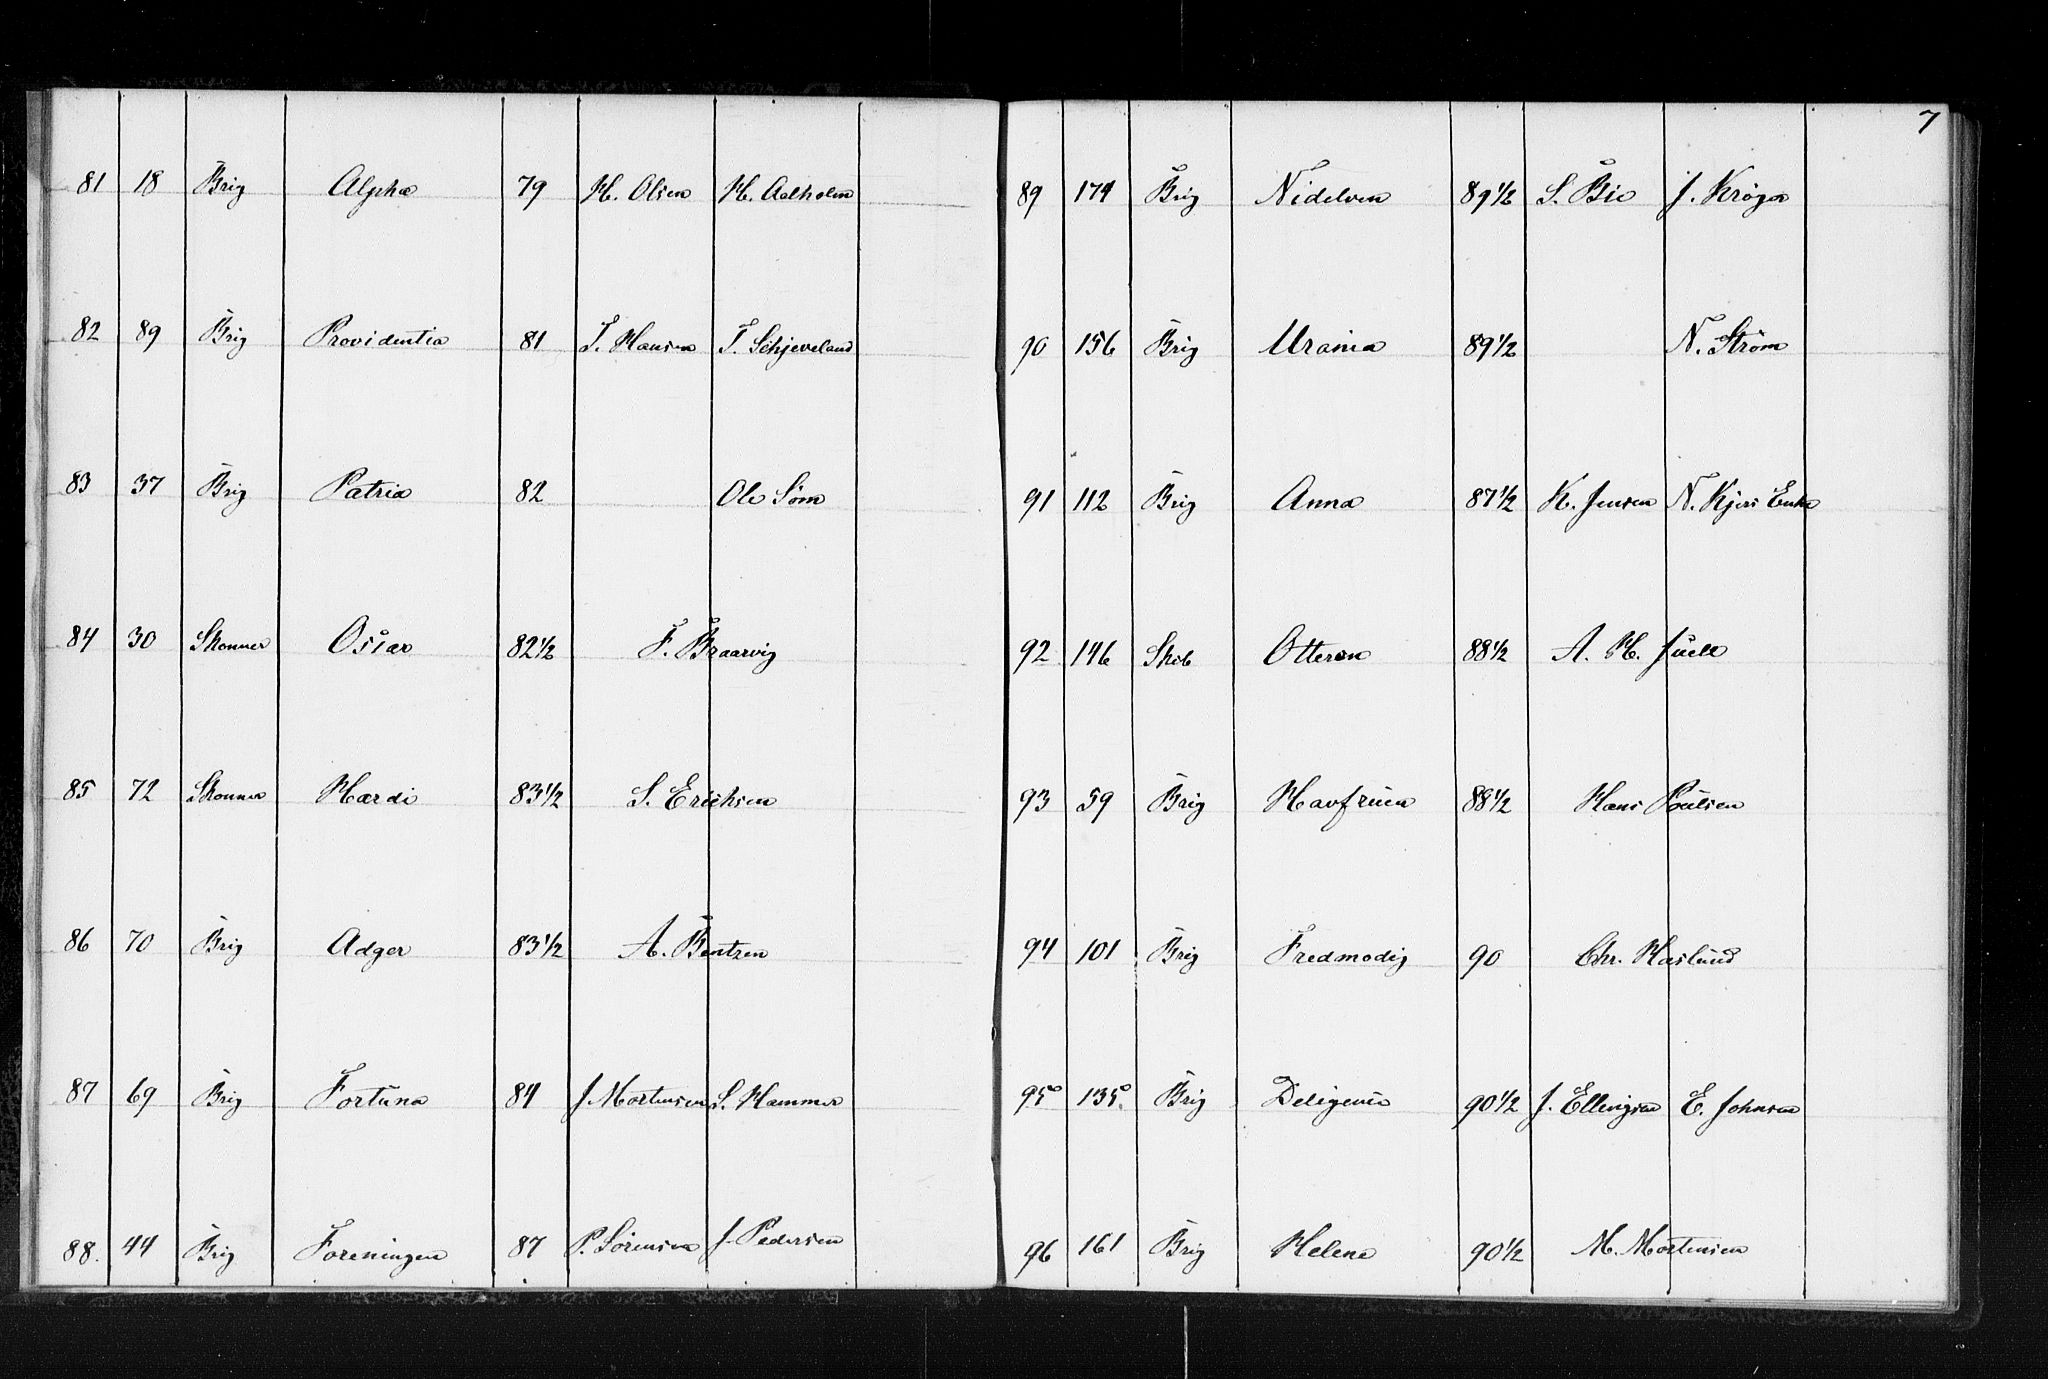 81 18 Brig Alpha 79 H. Olsen H. Aalholm
82 89 Brig Providentia 81 T. Hansen T. Schjeveland
83 37 Brig Patria 82 Ole Søm
84 30 Skonner Ossar 82 1/2 F. Braarvig
85 72 Skonner Hardi 83 1/2 S. Erichsen
86 70 Brig Adger 83 1/2 A. Bentzen
87 69 Brig Fortuna 84 J Mortensen S. Hammer
88. 44 Brig Foreningen 87 P. Sörensen J. Pedersen
7
89 174 Brig Nidelven 89 1/2 S. Bie J. Kröger
90 156 Brig Urania 89 1/2 N. Ström
91 112 Brig Anna 87 1/2 K. Jensen N. Kjers Enke
92 146 Skib Otteren 88 1/2 A. H. Juell
93 59 Brig Havfruen 88 1/2 Hans Poulsen
94 101 Brig Fredmodig 90 Chr. Haslund
95 135. Brig 90 1/2 J. Ellingsen E. Johnsen
96 161 Brig Helene 90 1/2 M. Mortensen